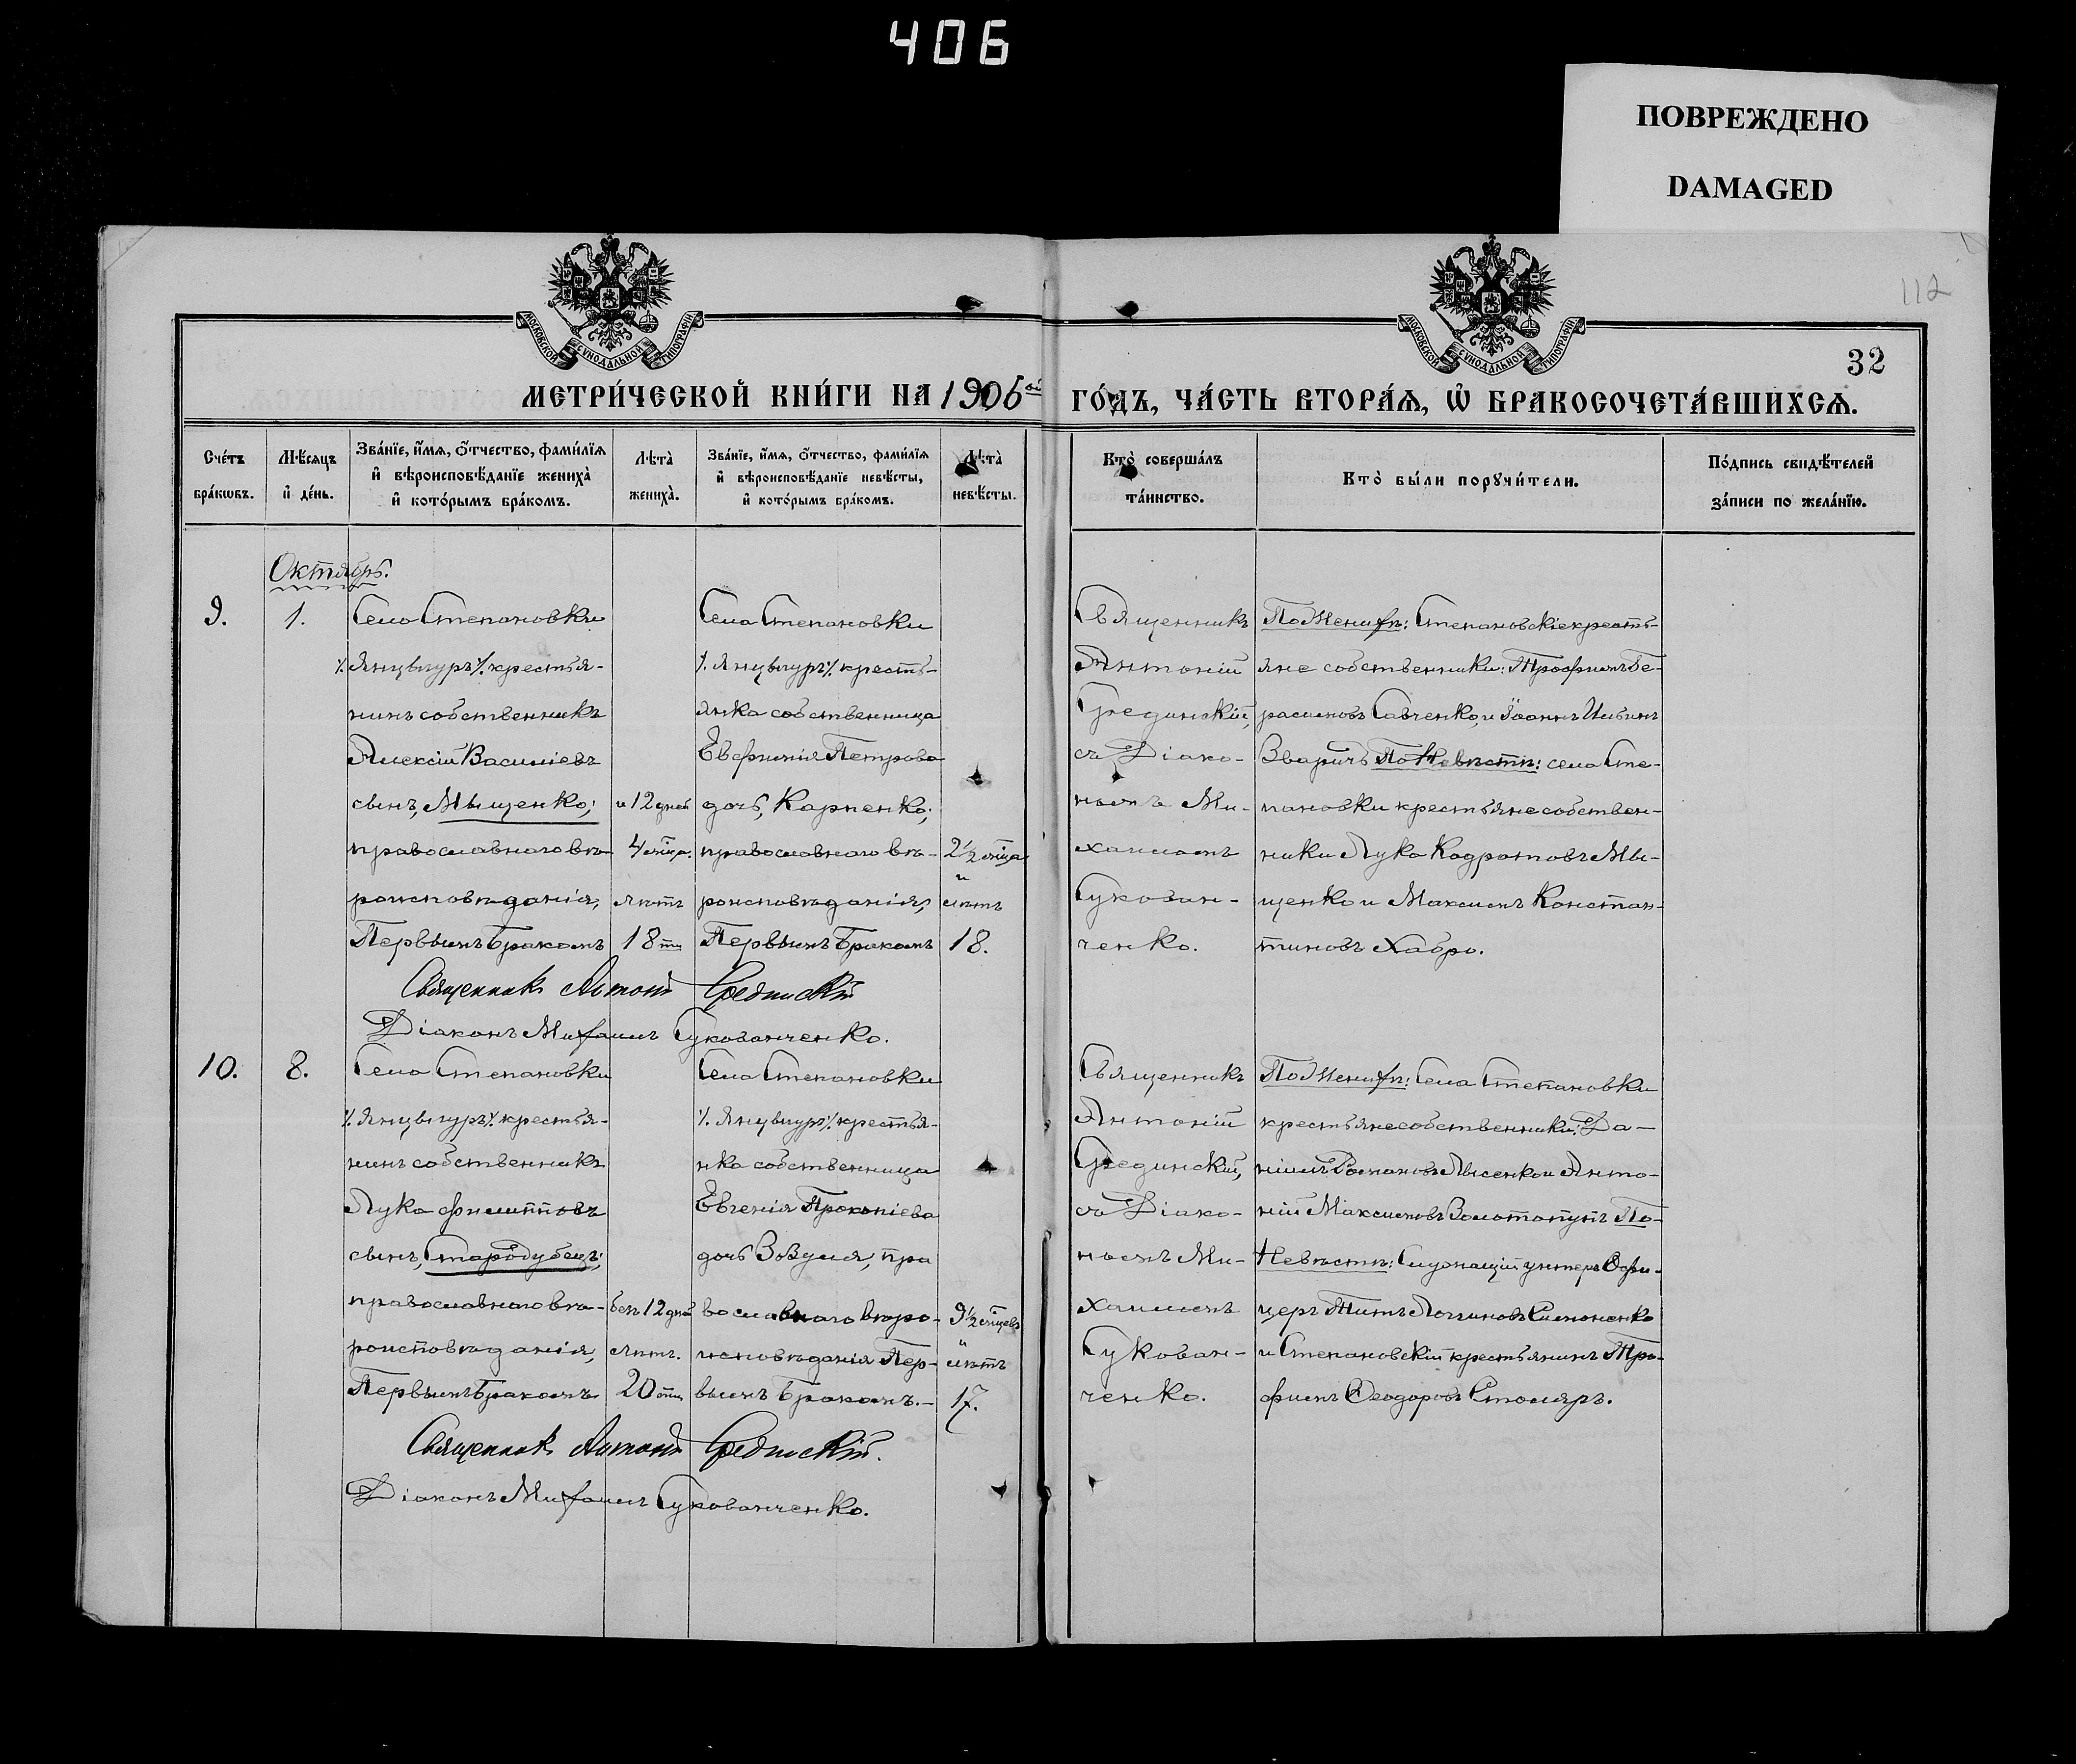 406
ПОВРЕЖДЕНО
DAMAGED
112
МОСКОВСКОЙ СѴНОДАЛЬНОЙ ТИПОГРАФІИ
МОСКОВСКОЙ СѴНОДАЛЬНОЙ ТИПОГРАФІИ
32
МЕТРИ́ЧЕСКОЙ КНИ́ГИ НА 1906ой ГО́ДЪ, ЧА́СТЬ ВТОРА́Я, Ѽ БРАКОСОЧЕТА́ВШИХСЯ.
Сче́тъ бра́кѡвъ.
Мѣ́сяцъ и҆ де́нь.
Зва́нїе, и҆́мя, ѻ҆́тчество, фами́лїя
и҆ вѣроисповѣ́данїе жениха̀
и҆ кото́рымъ бра́комъ.
Лѣта̀ жениха̀.
Зва́нїе, и҆́мя, ѻ҆́тчество, фами́лїя
и҆ вѣроисповѣ́данїе невѣ́сты,
и҆ кото́рымъ бра́комъ.
Лѣта̀ невѣ́сты.
Кто̀ соверша́лъ та́инство.
Кто̀ бы́ли порꙋчи́тели.
По́дпись свидѣ́телей за́писи по жела́нїю.
Октябрь.
9.
1.
Села Степановки
·/. Янцыгуръ ·/. крестья-
нинъ собственникъ
Алексій Василіевъ
сынъ, Мыщенко;
православнаго вѣ-
роисповѣданія,
Первымъ бракомъ
и 12 дней
4 мѣсяца.
лѣтъ
18ти
Села Степановки
·/. Янцыгуръ ·/. кресть-
янка собственница
Евфимія Петрова
дочь, Карпенко;
православнаго вѣ-
роисповѣданія,
Первымъ бракомъ
2½ мѣсяца
и
лѣтъ
18.
Священникъ
Антоній
Срединскій,
съ Діако-
номъ Ми-
хаиломъ
Сукован-
ченко.
По Женихѣ: Степановскіе кресть-
яне собственники: Трофимъ Ге-
расимовъ Савченко, и Іоаннъ Ильинъ
Зваричъ По Невѣстѣ: села Сте-
пановки крестьяне собствен-
ники Лука Кадратовъ Мы-
щенко и Максимъ Констан-
тиновъ Хабро.
Священникъ Антоній Срединскій
Діаконъ Михаилъ Сукованченко.
10.
8.
Села Степановки
·/. Янцыгуръ ·/. крестья-
нинъ собственникъ
Лука Филипповъ
сынъ, Стародубецъ;
православнаго вѣ-
роисповѣданія,
Первымъ бракомъ
безъ 12 дней
лѣтъ.
20ти
Села Степановки
·/. Янцыгуръ ·/. крестья-
нка собственница
Евгенія Прокопіева
дочь Зовуля, пра
вославнаго вѣро-
исповѣданія Пер-
вымъ бракомъ.-
9½ мѣсяцевъ
и
лѣтъ
17.
Священникъ
Антоній
Срединскій,
съ Діако-
номъ Ми-
хаиломъ
Сукован-
ченко.
По Женихѣ: Села Степановки
крестьяне собственники: Да-
ніилъ Романовъ Лысенко и Анто-
ній Максимовъ Золотопупъ По-
Невѣстѣ: Служащій унтеръ Офи-
церъ Титъ Логгиновъ Симоненко
и Степановскій крестьянинъ Тро-
фимъ Ѳеодоровъ Столяръ.
Священникъ Антоній Срединскій.
Діаконъ Михаилъ Сукованченко.